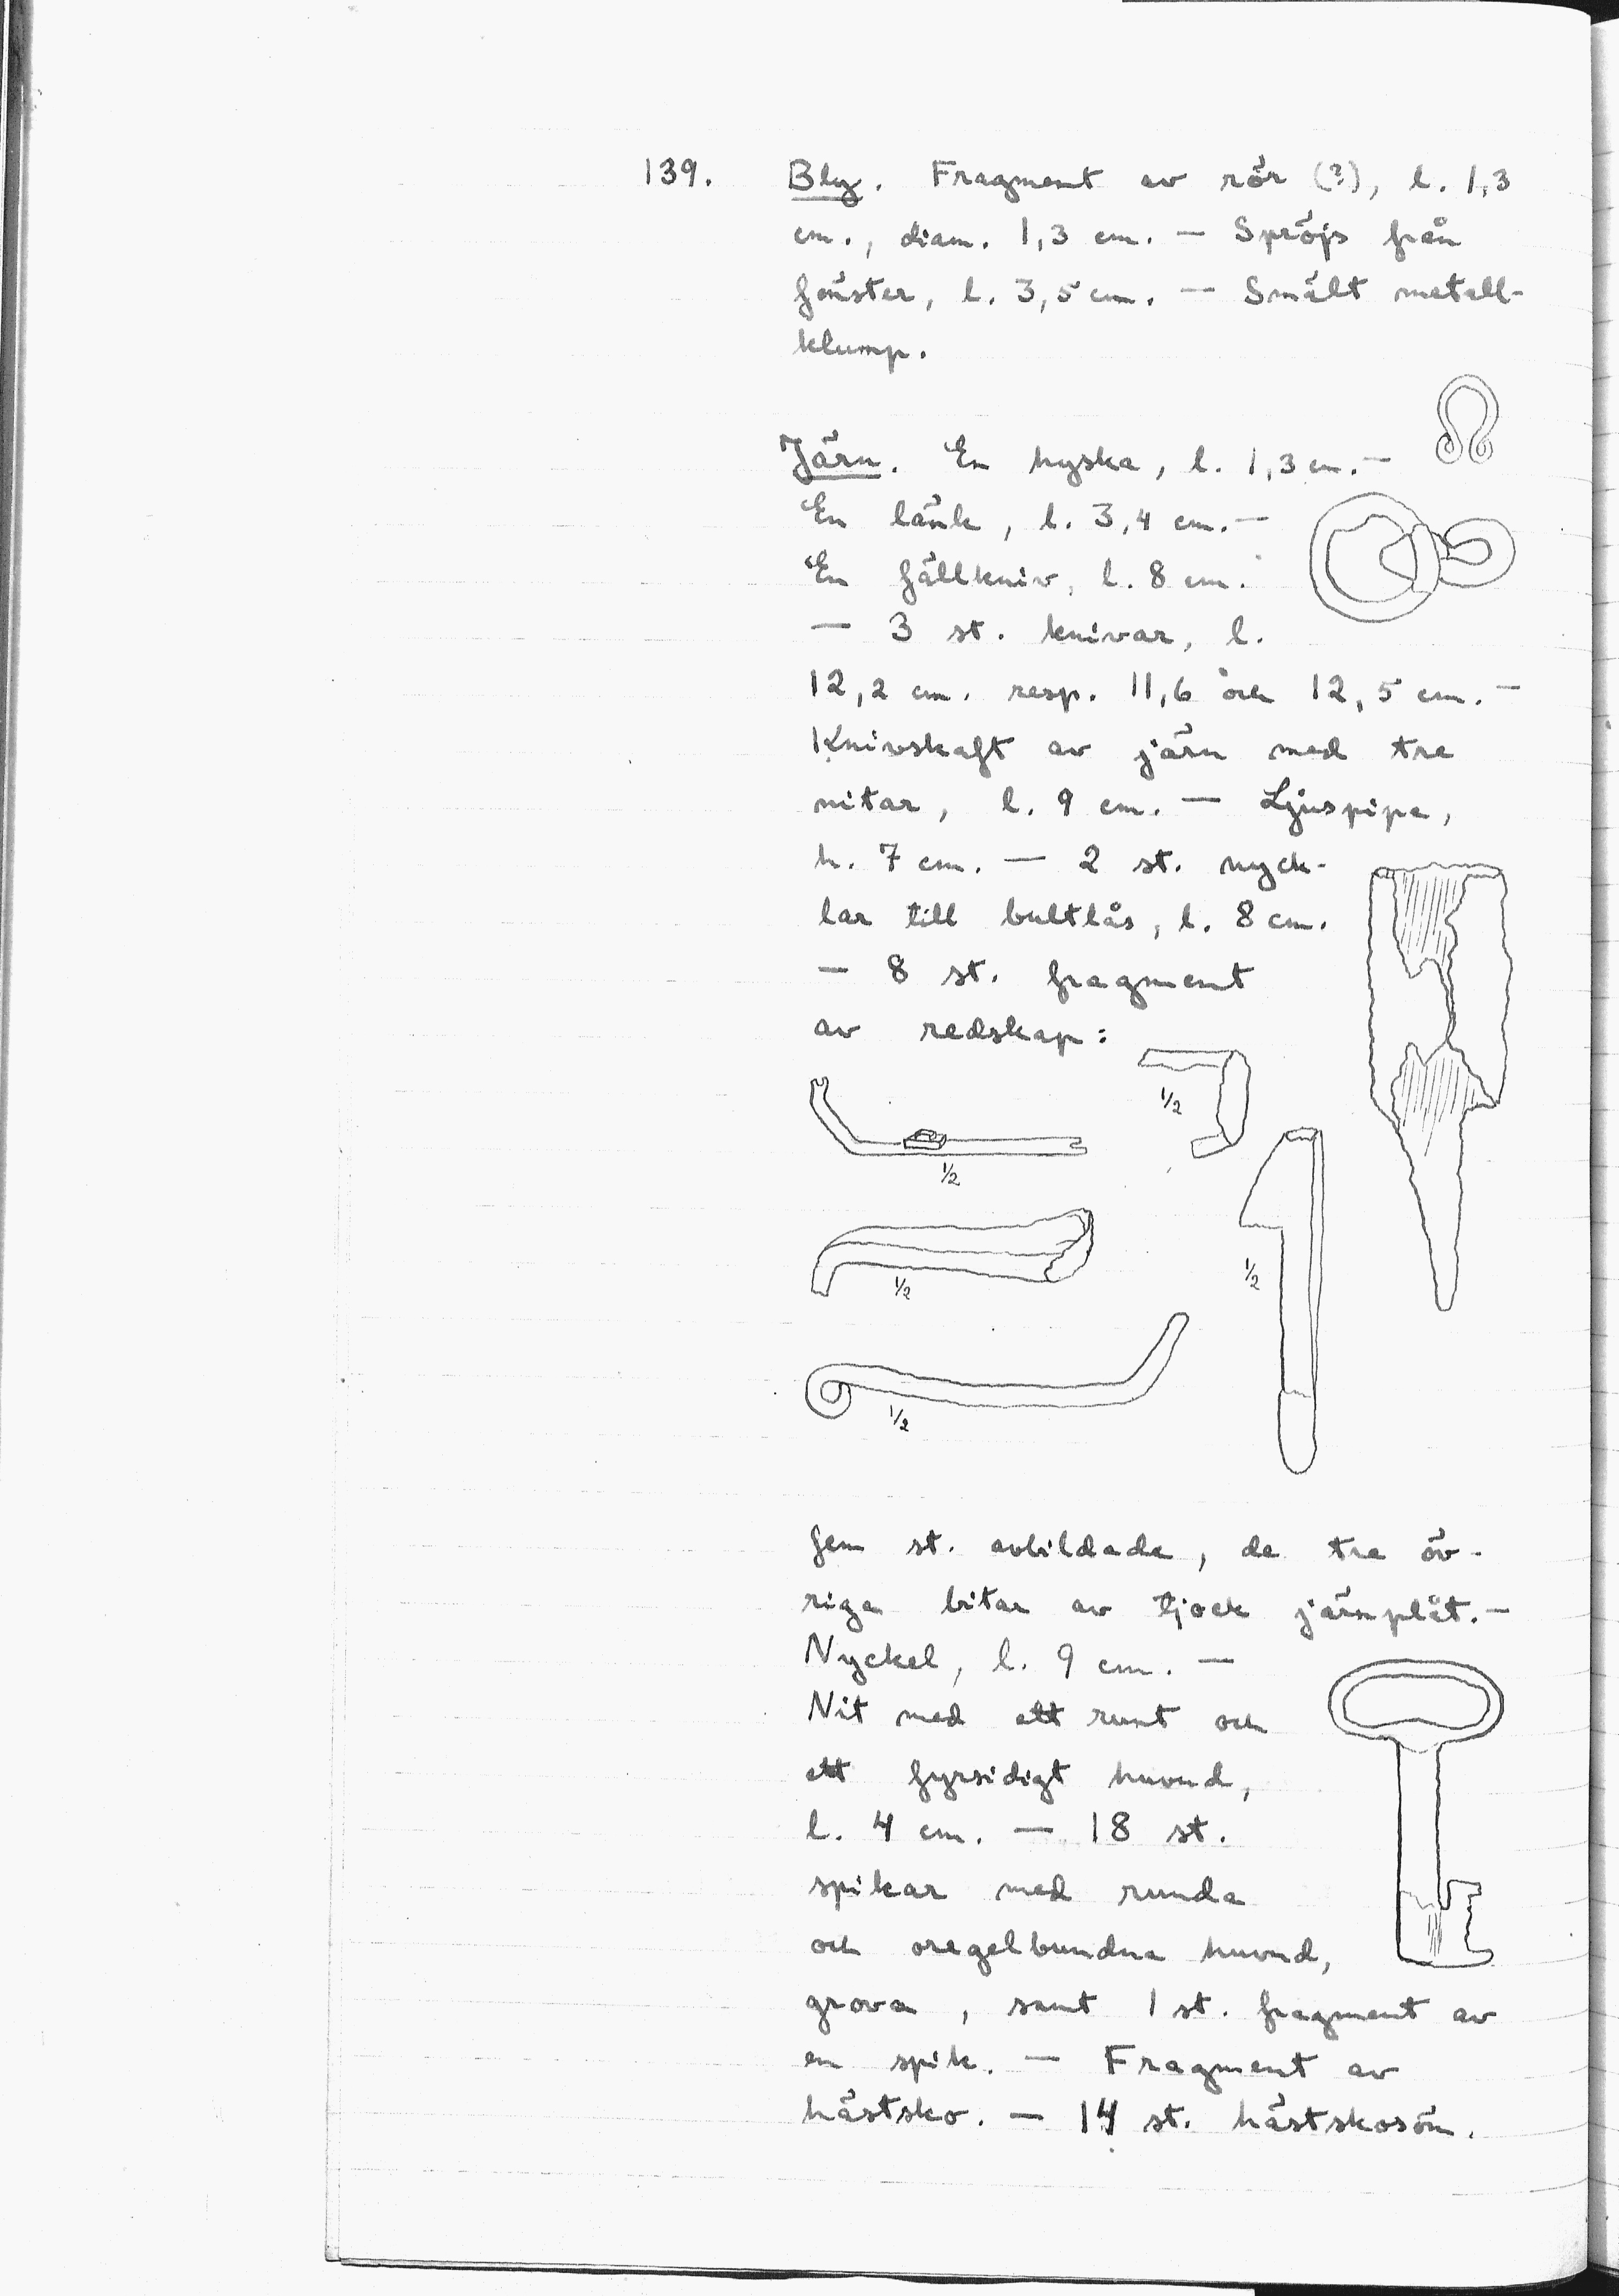 139. Bly. Fragment av rör (?), l. 1,3
cm., diam. 1,3 cm. — Spröjs från
fönster, l. 3,5 cm. — Smält metall-
klump.
Järn. En hyska, l. 1,3 cm. —
En länk, l. 3,4 cm. —
En fällkniv, l. 8 cm.
— 3 st. knivar, l.
12,2 cm. resp. 11,6 och 12,5 cm. —
Knivskaft av järn med tre
nitar, l. 9 cm. — Ljuspipa,
h. 7 cm. — 2 st. nyck-
lar till bultlås, l. 8 cm.
— 8 st. fragment
av redskap:
1/2
1/2
1/2
1/2
1/2
fem st. avbildade, de tre öv-
riga bitar av tjock järnplåt. —
Nyckel, l. 9 cm. —
Nit med ett runt och
ett fyrsidigt huvud,
l. 4 cm. — 18 st.
spikar med runda
och oregelbundna huvud,
grova, samt 1 st. fragment av
en spik. — Fragment av
hästsko. — 14 st. hästskosöm.